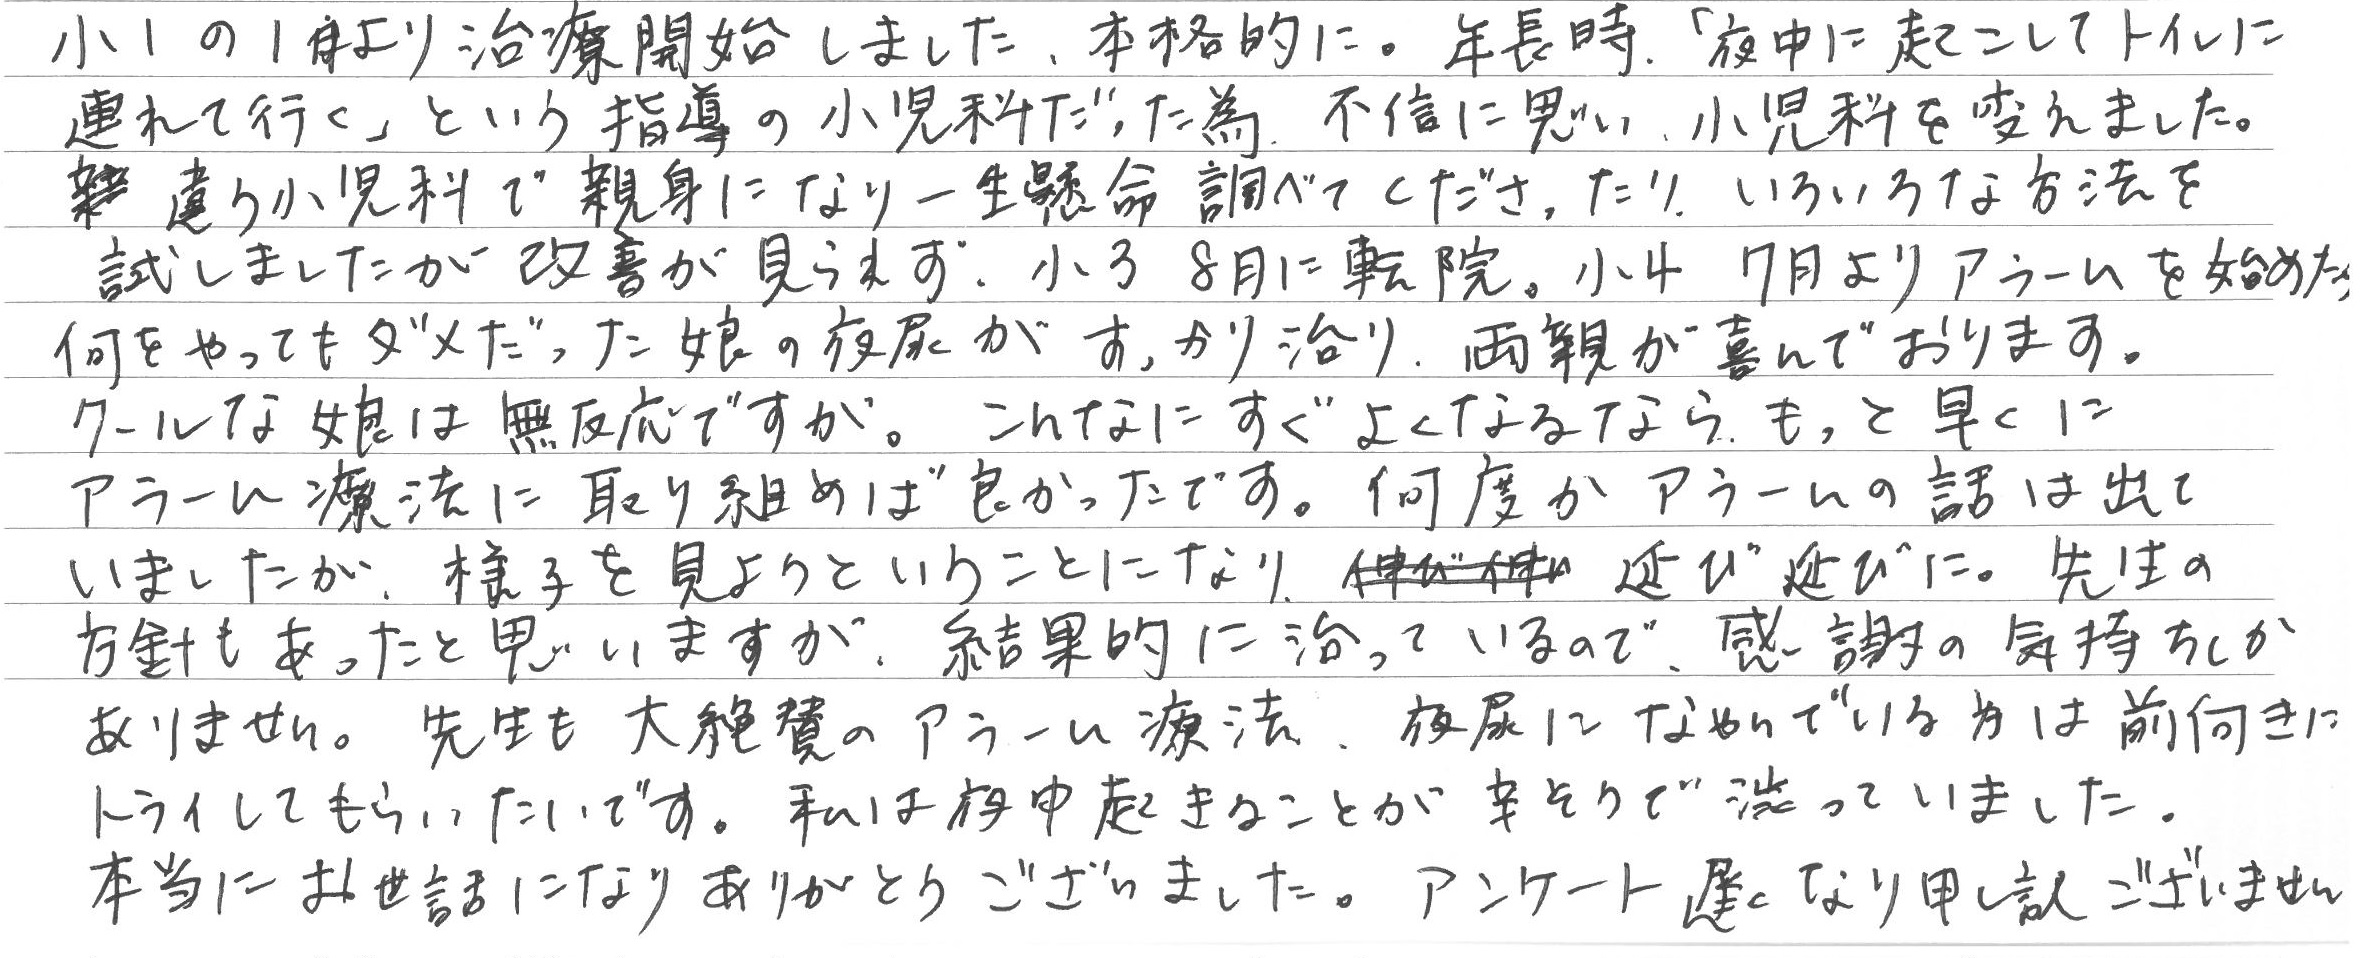 小1の1月より治療開始しました、本格的に。年長時、「夜中に起こしてトイレに
連れて行く」という指導の小児科だった為、不信に思い、小児科を変えました。
違う小児科で親身になり一生懸命調べてくださったり、いろいろな方法を
試しましたが改善が見られず、小3 8月に転院。小4 7月よりアラームを始めたら
何をやってもダメだった娘の夜尿がすっかり治り、両親が喜んでおります。
クールな娘は無反応ですが。こんなにすぐよくなるなら、もっと早くに
アラーム療法に取り組めば良かったです。何度かアラームの話は出て
いましたが、様子を見ようということになり、延び延びに。先生の
方針もあったと思いますが、結果的に治っているので、感謝の気持ちしか
ありません。先生も大絶賛のアラーム療法、夜尿になやんでいる方は前向きに
トライしてもらいたいです。私は夜中起きることが辛そうで渋っていました。
本当にお世話になりありがとうございました。アンケート遅くなり申し訳ございません